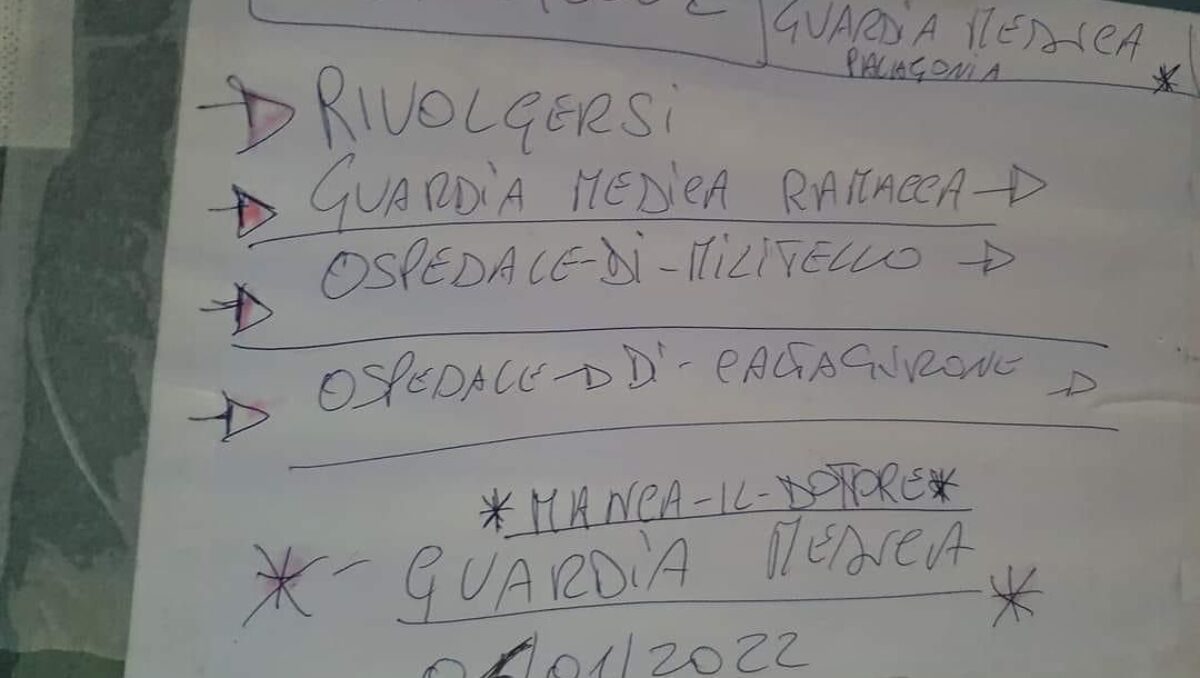 GUARDIA MEDICA
PALAGONIA *
RIVOLGERSI
GUARDIA MEDICA RAMACCA
OSPEDALE-DI-MILITELLO
OSPEDALE DI-CALTAGIRONE
*MANCA-IL-DOTTORE*
*-GUARDIA MEDICA *
/01/2022